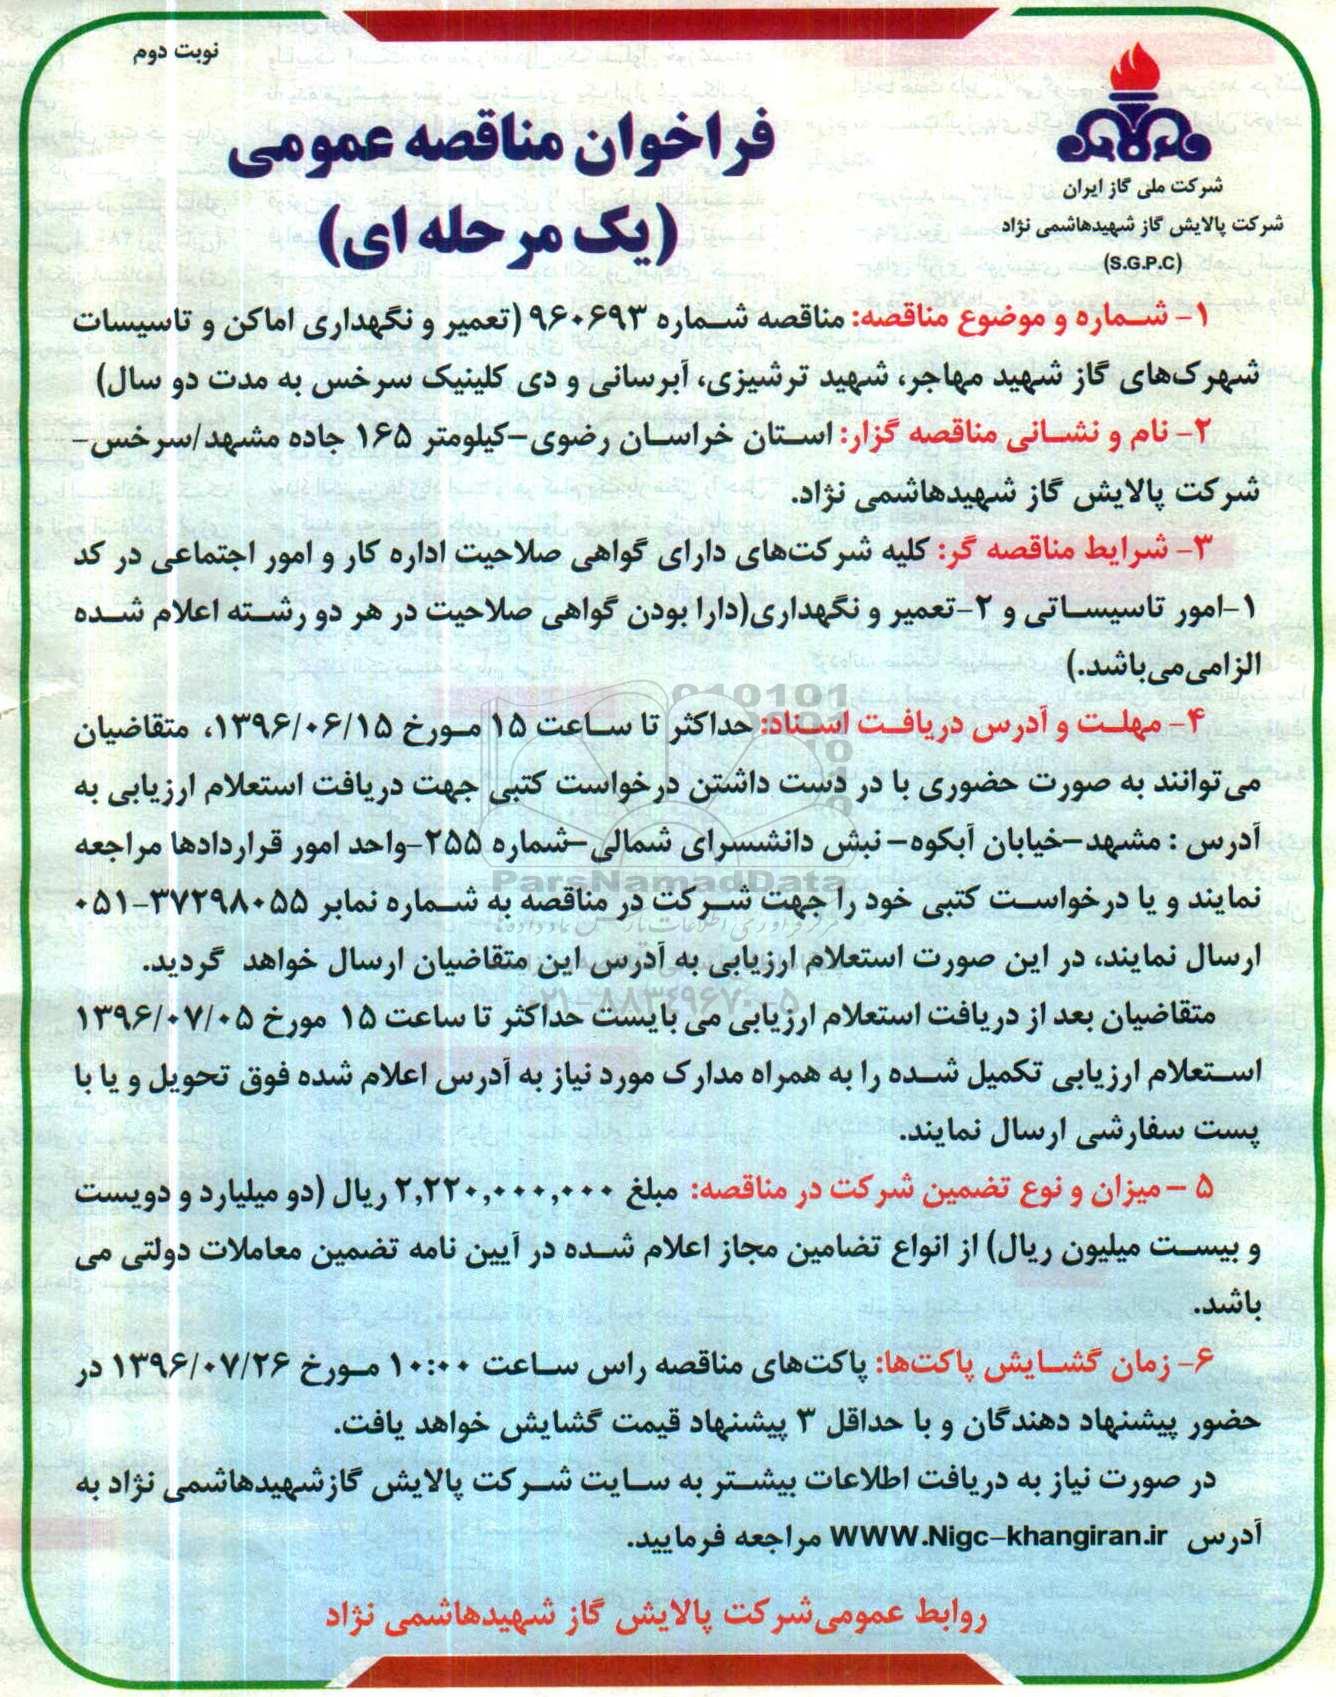 نوبت دوم
فراخوان مناقصه عمومی
(یک مرحله ای)
شرکت ملی گاز ایران
شرکت پالایش گاز شهیدهاشمی نژاد
(S.G.P.C)
۱- شماره و موضوع مناقصه: مناقصه شماره ۹۶۰۶۹۳ (تعمیر و نگهداری اماکن و تاسیسات
شهرک‌های گاز شهید مهاجر، شهید ترشیزی، آبرسانی و دی کلینیک سرخس به مدت دو سال)
۲- نام و نشانی مناقصه گزار: استان خراسان رضوی-کیلومتر ۱۶۵ جاده مشهد/سرخس-
شرکت پالایش گاز شهیدهاشمی نژاد.
۳- شرایط مناقصه گر: کلیه شرکت‌های دارای گواهی صلاحیت اداره کار و امور اجتماعی در کد
۱-امور تاسیساتی و ۲-تعمیر و نگهداری(دارا بودن گواهی صلاحیت در هر دو رشته اعلام شده
الزامی‌می‌باشد.)
۴- مهلت و آدرس دریافت اسناد: حداکثر تا ساعت ۱۵ مورخ ۱۳۹۶/۰۶/۱۵، متقاضیان
می‌توانند به صورت حضوری با در دست داشتن درخواست کتبی جهت دریافت استعلام ارزیابی به
آدرس : مشهد-خیابان آبکوه- نبش دانشسرای شمالی-شماره ۲۵۵-واحد امور قراردادها مراجعه
نمایند و یا درخواست کتبی خود را جهت شرکت در مناقصه به شماره نمابر ۳۷۲۹۸۰۵۵-۰۵۱
ارسال نمایند، در این صورت استعلام ارزیابی به آدرس این متقاضیان ارسال خواهد گردید.
متقاضیان بعد از دریافت استعلام ارزیابی می بایست حداکثر تا ساعت ۱۵ مورخ ۱۳۹۶/۰۷/۰۵
استعلام ارزیابی تکمیل شده را به همراه مدارک مورد نیاز به آدرس اعلام شده فوق تحویل و یا با
پست سفارشی ارسال نمایند.
۵ - میزان و نوع تضمین شرکت در مناقصه: مبلغ ۲,۲۲۰,۰۰۰,۰۰۰ ریال (دو میلیارد و دویست
و بیست میلیون ریال) از انواع تضامین مجاز اعلام شده در آیین نامه تضمین معاملات دولتی می
باشد.
۶- زمان گشایش پاکت‌ها: پاکت‌های مناقصه راس ساعت ۱۰:۰۰ مورخ ۱۳۹۶/۰۷/۲۶ در
حضور پیشنهاد دهندگان و با حداقل ۳ پیشنهاد قیمت گشایش خواهد یافت.
در صورت نیاز به دریافت اطلاعات بیشتر به سایت شرکت پالایش گازشهیدهاشمی نژاد به
آدرس WWW.Nigc-khangiran.ir مراجعه فرمایید.
روابط عمومی‌شرکت پالایش گاز شهیدهاشمی نژاد
ParsNamadData
۰۲۱-۸۸۳۴۹۶۷۰-۵